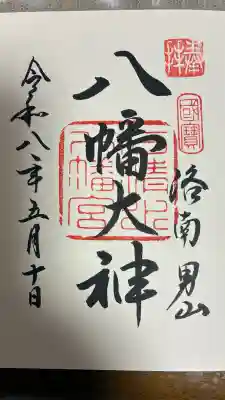 奉拝
國寶
洛南 男山
八幡大神
石清水八幡宮
令和八年五月十日